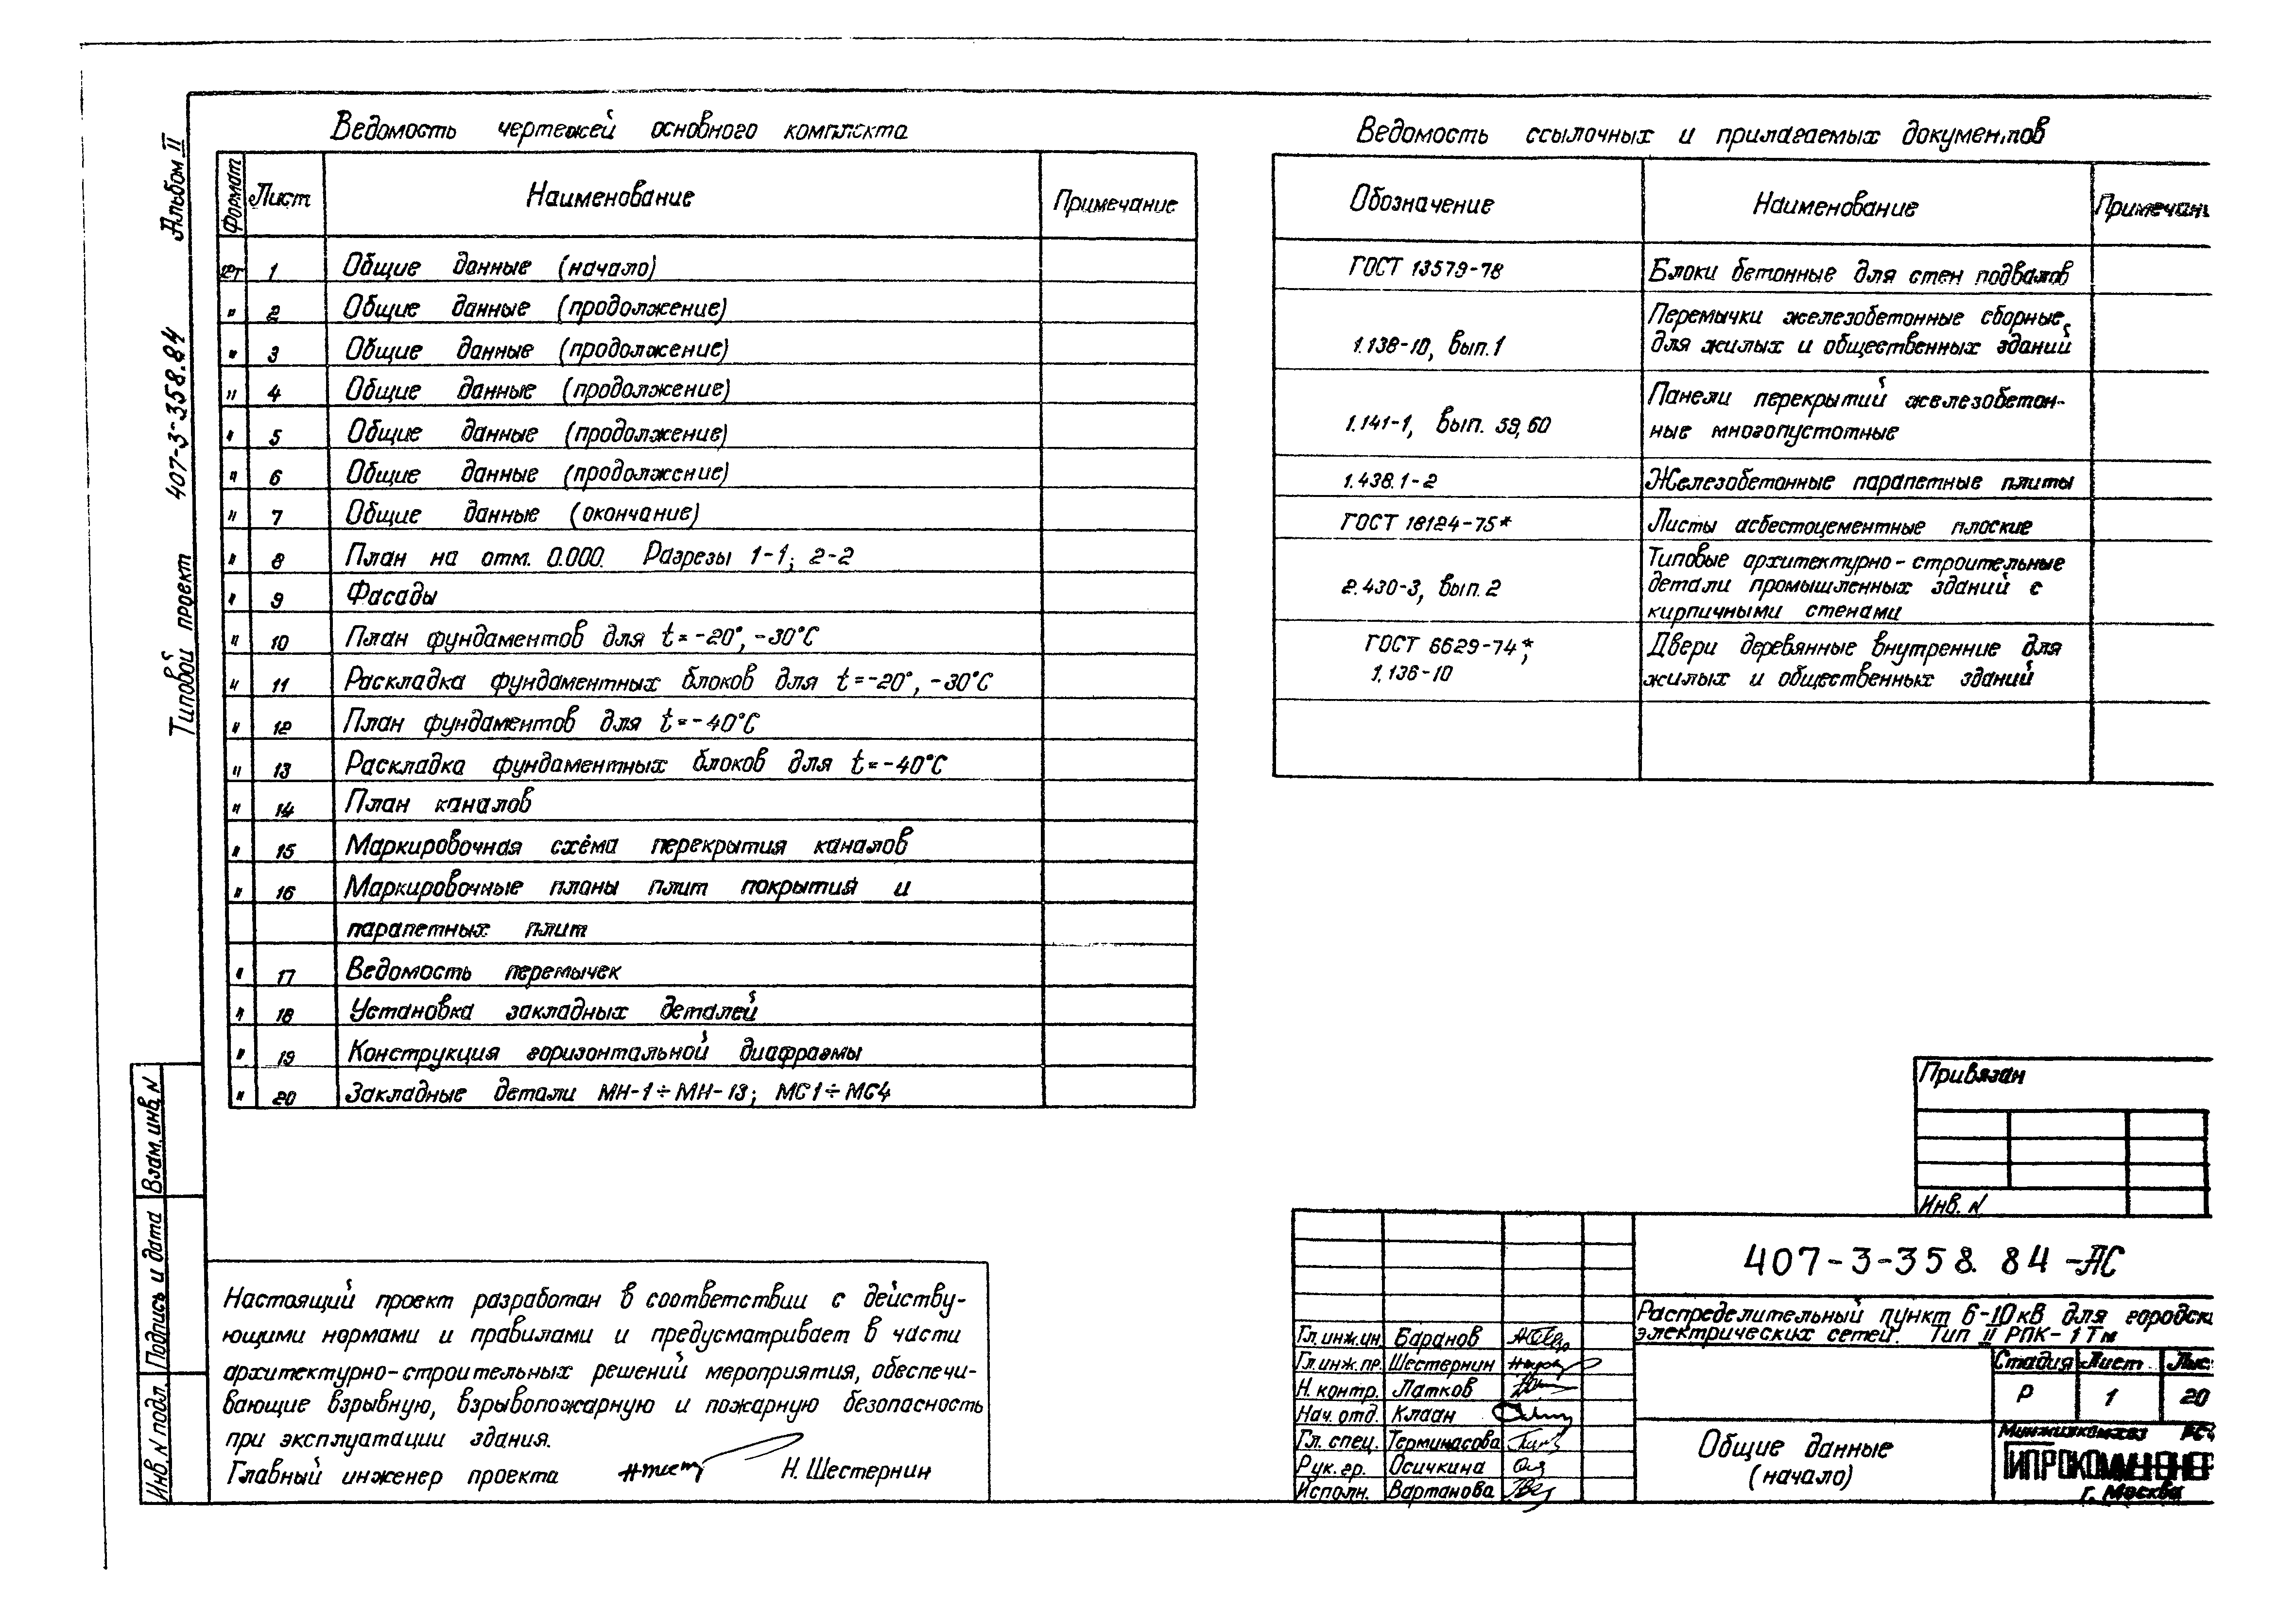 Ведомость чертежей основного комплекта
Формат Лист Наименование Примечание
1 Общие данные (начало)
" 2 Общие данные (продолжение)
" 3 Общие данные (продолжение)
" 4 Общие данные (продолжение)
" 5 Общие данные (продолжение)
" 6 Общие данные (продолжение)
" 7 Общие данные (окончание)
" 8 План на отм. 0.000. Разрезы 1-1; 2-2
" 9 Фасады
" 10 План фундаментов для t=-20°, -30°С
" 11 Раскладка фундаментных блоков для t=-20°, -30°С
" 12 План фундаментов для t=-40°С
" 13 Раскладка фундаментных блоков для t=-40°С
" 14 План каналов
" 15 Маркировочная схема перекрытия каналов
" 16 Маркировочные планы плит покрытия и
парапетных плит
" 17 Ведомость перемычек
" 18 Установка закладных деталей
" 19 Конструкция горизонтальной диафрагмы
" 20 Закладные детали МН-1÷МН-13; МС1÷МС4
Ведомость ссылочных и прилагаемых документов
Обозначение Наименование Примечани
ГОСТ 13579-78 Блоки бетонные для стен подвалов
Перемычки железобетонные сборные
1.138-10, вып.1 для жилых и общественных зданий
Панели перекрытий железобетон-
1.141-1, вып. 59, 60 ные многопустотные
1.438.1-2 Железобетонные парапетные плиты
ГОСТ 18124-75* Листы асбестоцементные плоские
Типовые архитектурно-строительные
2.430-3, вып.2 детали промышленных зданий с
кирпичными стенами
ГОСТ 6629-74*, Двери деревянные внутренние для
1.136-10 жилых и общественных зданий
Типовой проект 407-3-358.84 Альбом II
Взам. инв. N
Подпись и дата
Инв. N подл.
Настоящий проект разработан в соответствии с действу-
ющими нормами и правилами и предусматривает в части
архитектурно-строительных решений мероприятия, обеспечи-
вающие взрывную, взрывопожарную и пожарную безопасность
при эксплуатации здания.
Главный инженер проекта Н. Шестернин
Привязан
Инв. N
407-3-358.84-АС
Распределительный пункт 6-10кВ для городски
электрических сетей. Тип II РПК-1Тм
Гл.инж.ин. Баранов
Гл.инж.пр. Шестернин
Н. контр. Латков
Нач. отд. Клаан
Гл. спец. Терминасова
Рук. гр. Осичкина
Исполн. Вартанова
Стадия Лист Лис
Р 1 20
Общие данные
(начало)
Минжилкомхоз РС
ГИПРОКОММУНЭНЕР
г. Москва